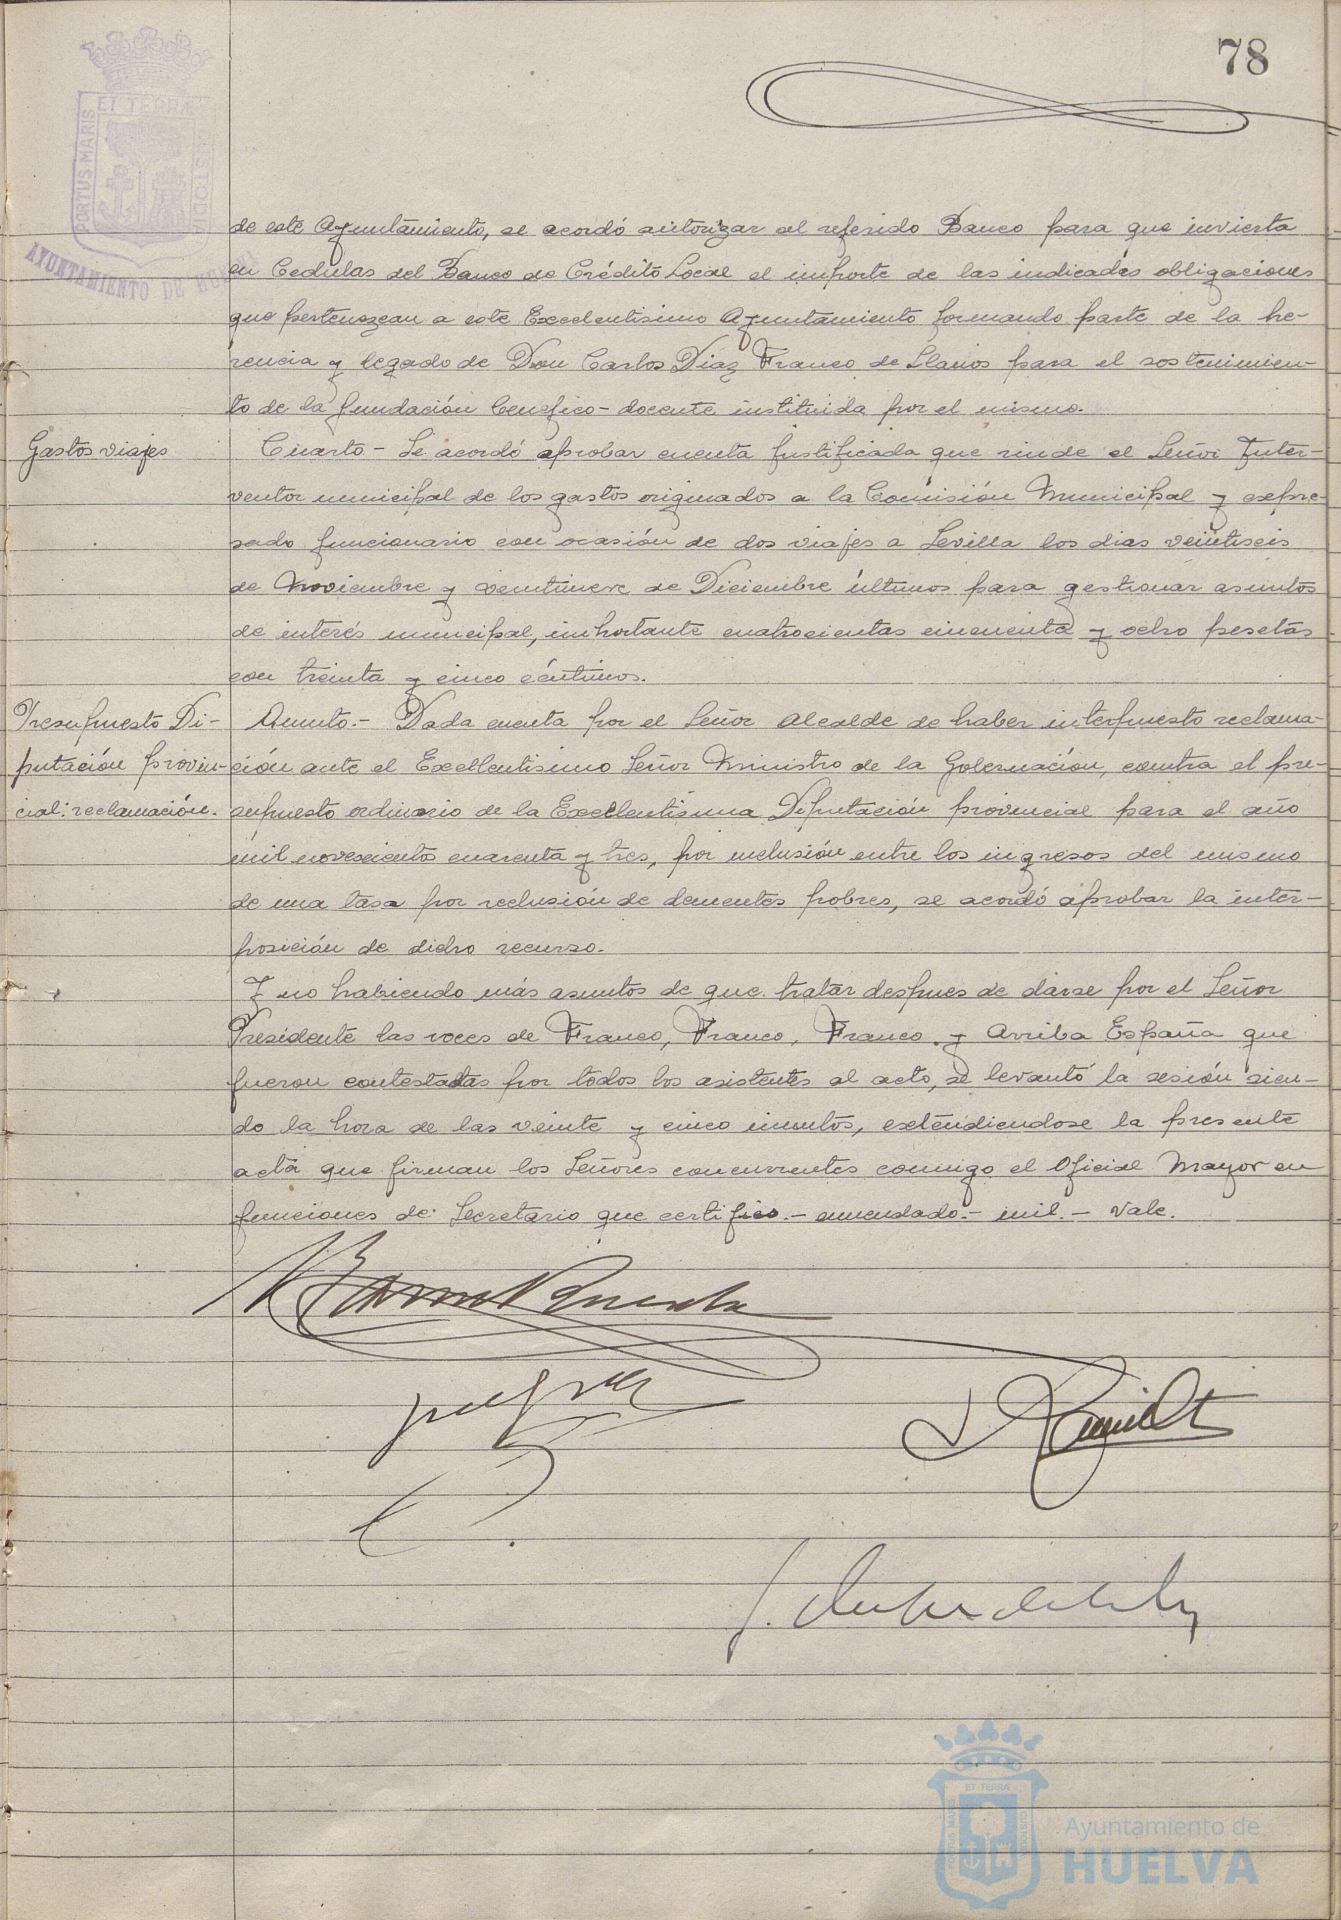 78
PORTUS MARIS ET TERRÆ CUSTODIA
AYUNTAMIENTO DE HUELVA
de este Ayuntamiento, se acordó autorizar al referido Banco para que invierta
en Cedulas del Banco de Crédito Local el importe de las indicadas obligaciones
que pertenezcan a este Excelentisimo Ayuntamiento formando parte de la he-
rencia y legado de Don Carlos Diaz Franco de Llanos para el sostenimien-
to de la fundación benefico-docente instituida por el mismo.
Gastos viajes
Cuarto - Se acordó aprobar cuenta justificada que rinde el Señor Inter-
ventor municipal de los gastos originados a la Comisión Municipal y expre-
sado funcionario con ocasión de dos viajes a Sevilla los dias veintiseis
de Noviembre y veintinueve de Diciembre últimos para gestionar asuntos
de interés municipal, importante cuatrocientas cincuenta y ocho pesetas
con treinta y cinco céntimos.
Presupuesto Di-
putación provin-
cial: reclamación.
Quinto.- Dada cuenta por el Señor Alcalde de haber interpuesto reclama-
ción ante el Excelentisimo Señor Ministro de la Gobernación, contra el pre-
supuesto ordinario de la Excelentisima Diputación provincial para el año
mil novescientos cuarenta y tres, por inclusión entre los ingresos del mismo
de una tasa por reclusión de dementes pobres, se acordó aprobar la inter-
posición de dicho recurso.
Y no habiendo más asuntos de que tratar despues de darse por el Señor
Presidente las voces de Franco, Franco, Franco y Arriba España que
fueron contestadas por todos los asistentes al acto, se levantó la sesión sien-
do la hora de las veinte y cinco minutos, extendiendose la presente
acta que firman los Señores concurrentes conmigo el Oficial Mayor en
funciones de Secretario que certifico.- enmendado.- mil.- Vale.
ET TERRÆ
PORTUS MARIS
CUSTODIA
Ayuntamiento de
HUELVA